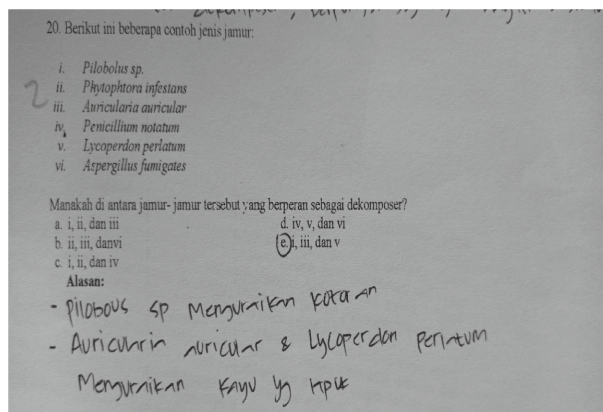 20. Berikut ini beberapa contoh jenis jamur:
2
i. Pilobolus sp.
ii. Phytophtora infestans
iii. Auricularia auricular
iv. Penicillium notatum
v. Lycoperdon perlatum
vi. Aspergillus fumigates
Manakah di antara jamur- jamur tersebut yang berperan sebagai dekomposer?
a. i, ii, dan iii
d. iv, v, dan vi
b. ii, iii, danvi
e. i, iii, dan v
c. i, ii, dan iv
Alasan:
- Pilobous sp Menguraikan kotoran
- Auricularia auricular & Lycoperdon perlatum
Menguraikan kayu yg lapuk